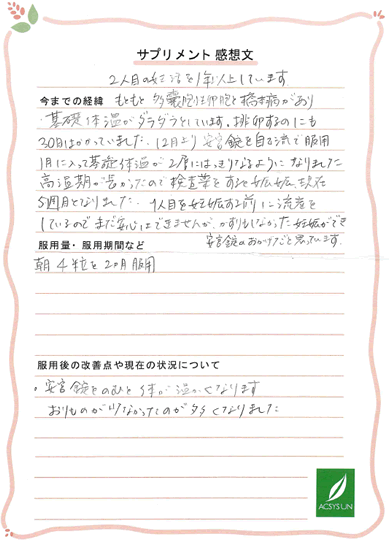 サプリメント感想文
2人目の妊活を1年以上しています
今までの経緯 もともと多嚢胞性卵胞と橋本病があり
基礎体温がダラダラとしています。排卵するのにも
30日はかかっていました。12月より安宮錠を自己流で服用
1月に入って基礎体温が2層にはっきりなるようになりました
高温期が長かったので検査薬をすると妊娠、現在
5週目となりました。1人目を妊娠する前に流産を
しているのでまだ安心はできませんが、かすりもしなかった妊娠ができ
安宮錠のおかげだと思っています。
服用量・服用期間など
朝4粒を2ヶ月服用
服用後の改善点や現在の状況について
・安宮錠をのむと体が温かくなります
おりものが少なかったのが多くなりました
ACSYSUN